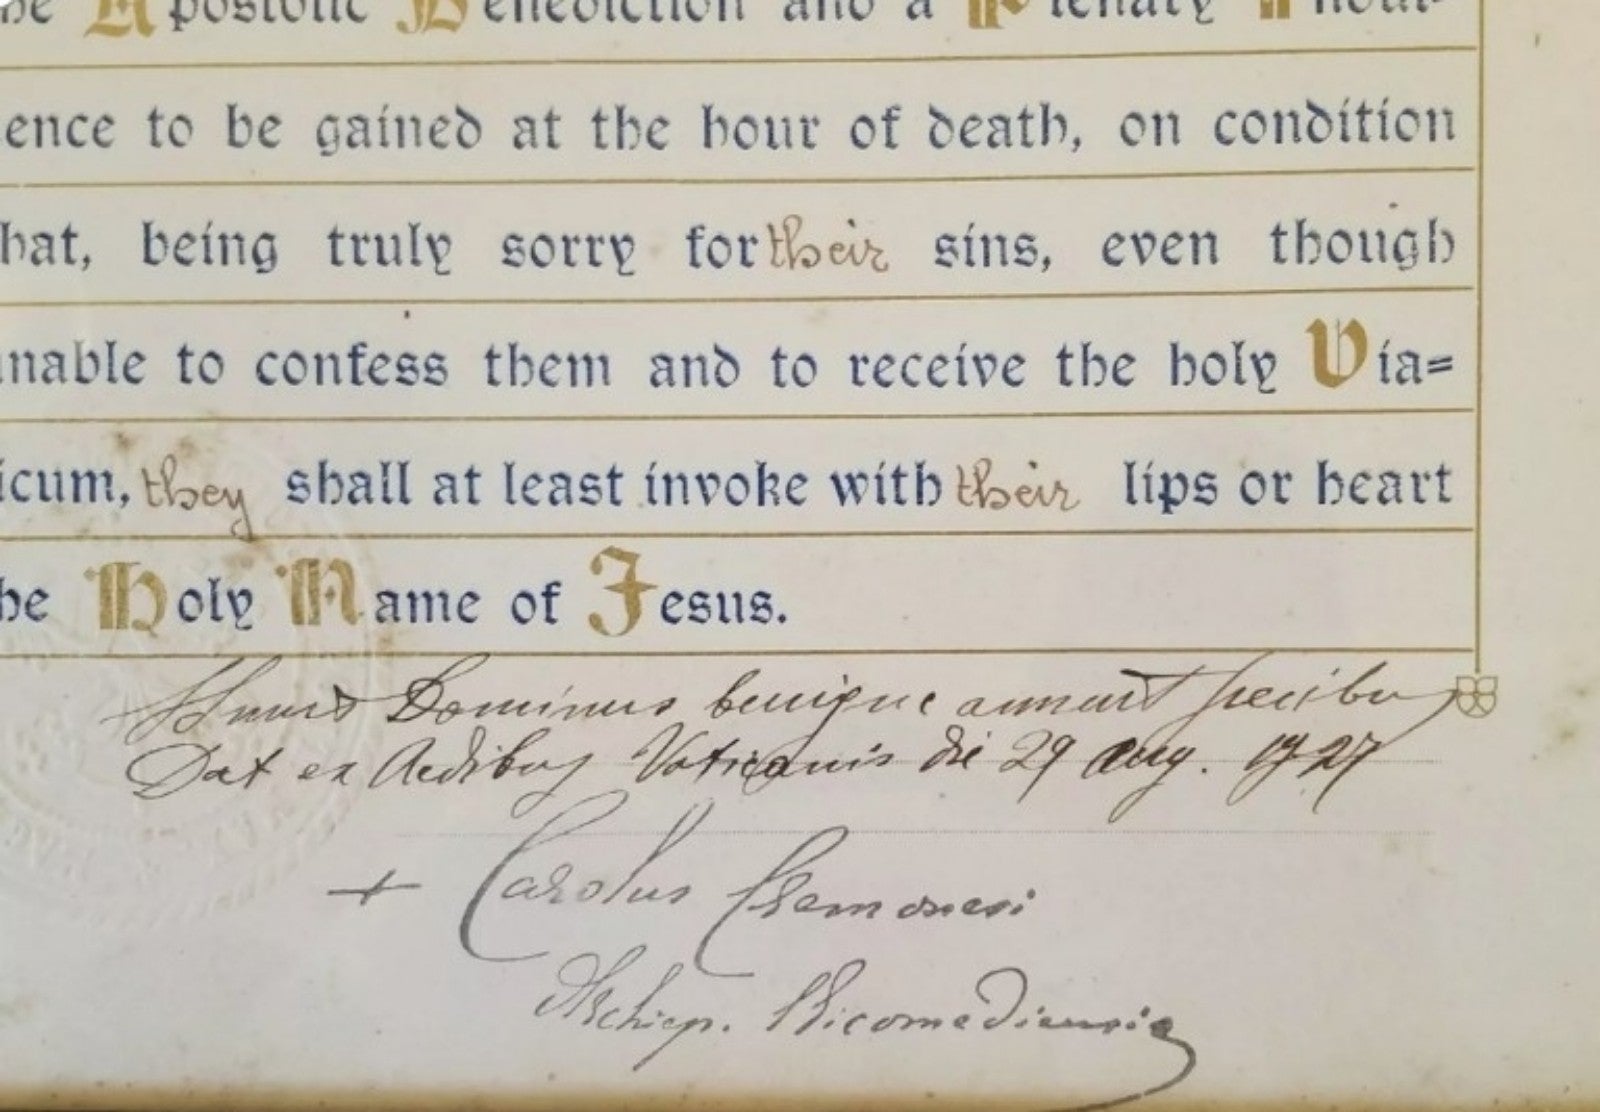 he Apostolic Benediction and a Plenary Indul-
ence to be gained at the hour of death, on condition
hat, being truly sorry for their sins, even though
unable to confess them and to receive the holy Via=
icum, they shall at least invoke with their lips or heart
he Holy Name of Jesus.
Dominus benigne annuit precibus
Dat ex Aedibus Vaticanis die 29 aug. 1927
+ Carolus Cremonesi
Archiep. Nicomediensis